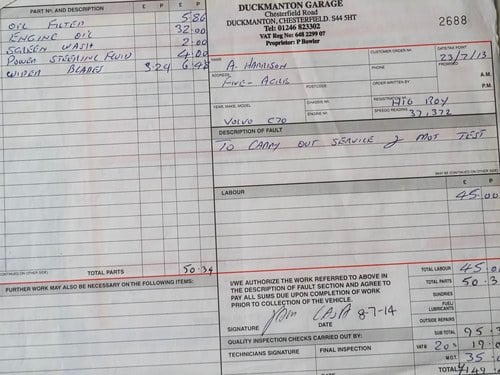 PART No. AND DESCRIPTION £ P £ P
OIL FILTER 5.86
ENGINE OIL 32.00
SCREEN WASH 2.00
POWER STEERING FLUID 4.00
WIPER BLADES 3 24 6.48
(CONTINUED ON OTHER SIDE) TOTAL PARTS 50.34
FURTHER WORK MAY ALSO BE NECESSARY ON THE FOLLOWING ITEMS:
DUCKMANTON GARAGE
Chesterfield Road
DUCKMANTON, CHESTERFIELD. S44 5HT
Tel: 01246 823302
VAT Reg No: 648 2299 07
Proprietor: P Bowler
2688
NAME A. HARRISON
CUSTOMER ORDER No.
DATE/TAX POINT 23/7/13
ADDRESS FIVE-ACRES
PHONE
PROMISED
A.M.
POSTCODE
ORDER WRITTEN BY
P.M.
YEAR, MAKE, MODEL VOLVO C70
CHASSIS No.
REGISTRATION
ENGINE No.
SPEEDO READING 37,372
DESCRIPTION OF FAULT
TO CARRY OUT SERVICE & MOT TEST
(MAY BE CONTINUED ON OTHER SIDE)
LABOUR £ P
45.00
I/WE AUTHORIZE THE WORK REFERRED TO ABOVE IN
THE DESCRIPTION OF FAULT SECTION AND AGREE TO
PAY ALL SUMS DUE UPON COMPLETION OF WORK
PRIOR TO COLLECTION OF THE VEHICLE.
SIGNATURE DATE 8-7-14
QUALITY INSPECTION CHECKS CARRIED OUT BY:
TECHNICIANS SIGNATURE FINAL INSPECTION
TOTAL LABOUR 45.0
TOTAL PARTS 50.3
SUNDRIES
FUEL/
LUBRICANTS
OUTSIDE REPAIRS
SUB TOTAL 95.3
VAT@ 20% 19.0
M.O.T. 35.
TOTAL £149.